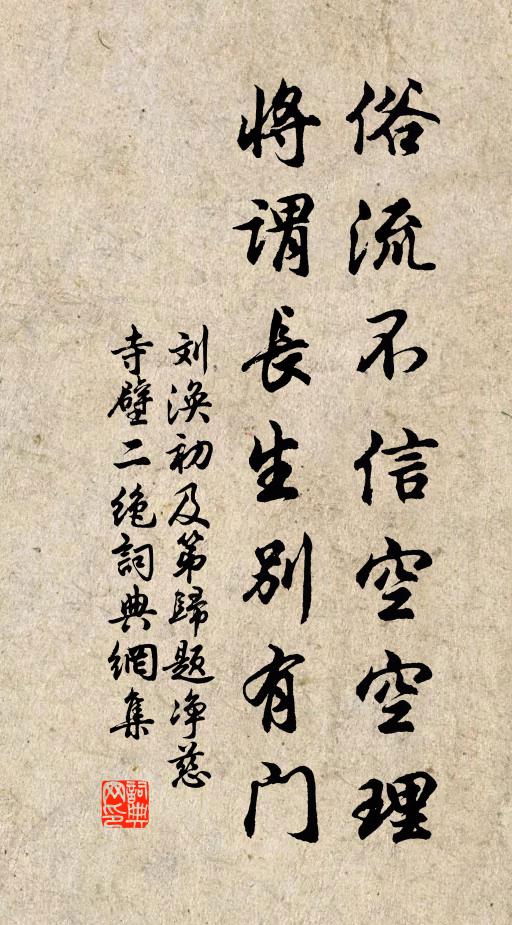 俗流不信空空理
将谓長生别有门
刘渙初及第歸題净慈
寺壁二绝詞典網集
詞典
网印